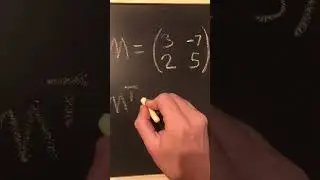 M = (3 -7
2 5)
M^T